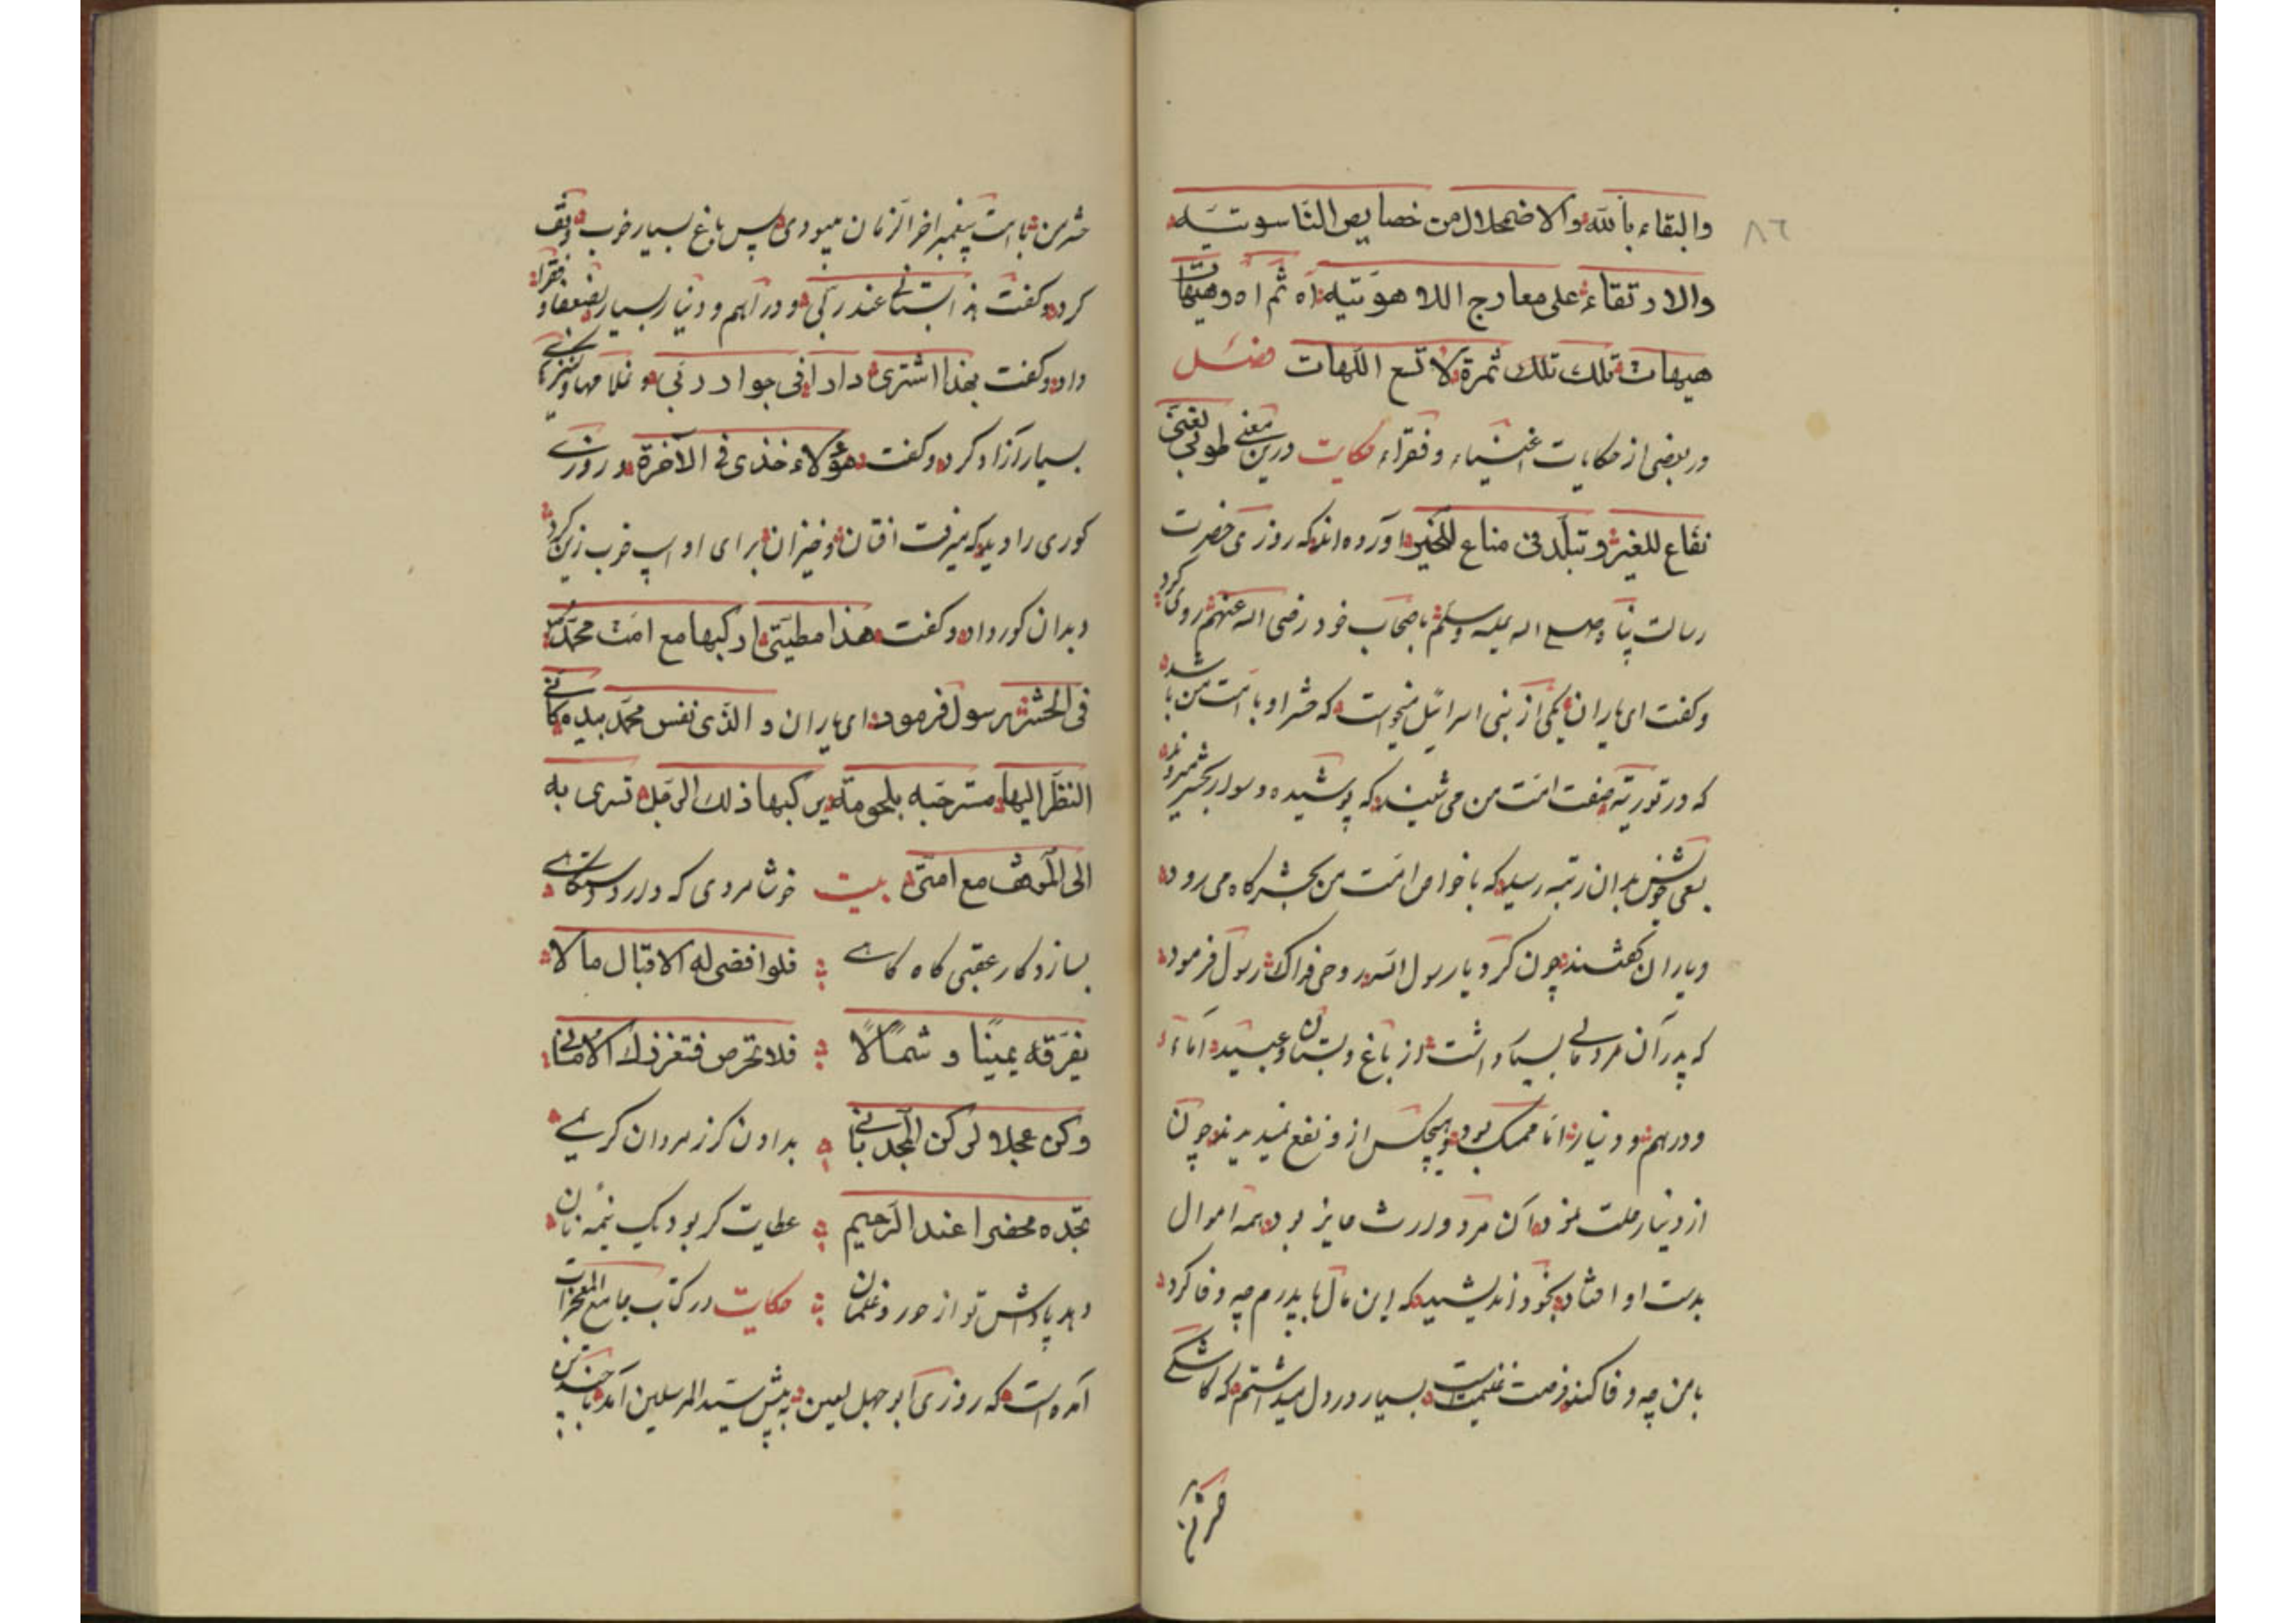 ٨٦
والبقاء بالله والاضمحلال من خصايص الناسوتيه
والارتقاء على معارج اللاهوتيه اه ثم اه وهيهات
هيهات تلك تلك ثمرة لا تسع اللهات فصل
در بعضی از حکایات اغنیاء و فقراء حکایت درین معنی طوبی لغنی
نفاع للغیر و تبلد فی مناع للخیر اورده اند که روزی حضرت
رسالت پناه صلی الله علیه وسلم باصحاب خود رضی الله عنهم روی کرد
و کفت ای یاران یکی از بنی اسرائیل میخواست که حشر او با امت من باشد
که در توریة صفت امت من می شنید که پوشیده و سوار بحشر میروند
بسعی خویش بدان رتبه رسید که با خواص امت من بحشرکاه می رود
و یاران کفتند چون کرد یا رسول الله روحی فداک رسول فرمود
که پدر آن مرد مالی بسیار داشت از باغ و بستان و عبید و اماء
و درهم و دینار اما ممسک بود و هیچکس از و نفع نمیدیدند چون
از دنیا رحلت نمود آن مرد وارث حایز بود همه اموال
بدست او افتاد بخود اندیشید که این مال با پدرم چه وفا کرد
با من چه وفا کند فرصت غنیمت است بسیار در دل میداشتم که کاشکی
حشر من
حشر من با امت پیغمبر اخر الزمان میبودی پس باغ بسیار خوب وقف
کرد و کفت هذا بستانی عند ربی و دراهم و دینار بسیار بضعفا و فقرا
داد و کفت بهذا اشتری دارا فی جوار ربی و غلامها و کنیزکها
بسیار آزاد کرد و کفت هؤلاء خذی فی الآخرة و روزی
کوری را دید که میرفت افتان و خیزان برای او اسپ خوب زین کرد
و بدان کور داد و کفت هذا مطیتی ارکبها مع امت محمد
فی الحشر رسول فرمود ای یاران و الذی نفس محمد بیده کانی
النظر الیها مسرجه ملجومة یرکبها ذلك الرجل تسری به
الی الموقف مع امتی بیت خوشا مردی که دارد دستکاهی
بسازد کار عقبی کاه کاهی فلوا فضی له الاقبال مالا
یفرقه یمینا و شمالا فلا تحرص فتغررك الامانی
وکن عجلا لرکن المجد بانی بدادن کرز مردان کریمی
تجده محضرا عند الرحیم عطایت کر بود یک نیمه نان
دهد پاداش تو از حور و غلمان حکایت در کتاب جامع المعجزات
آمده است که روزی ابو جهل لعین به پیش سید المرسلین آمد با چند تن